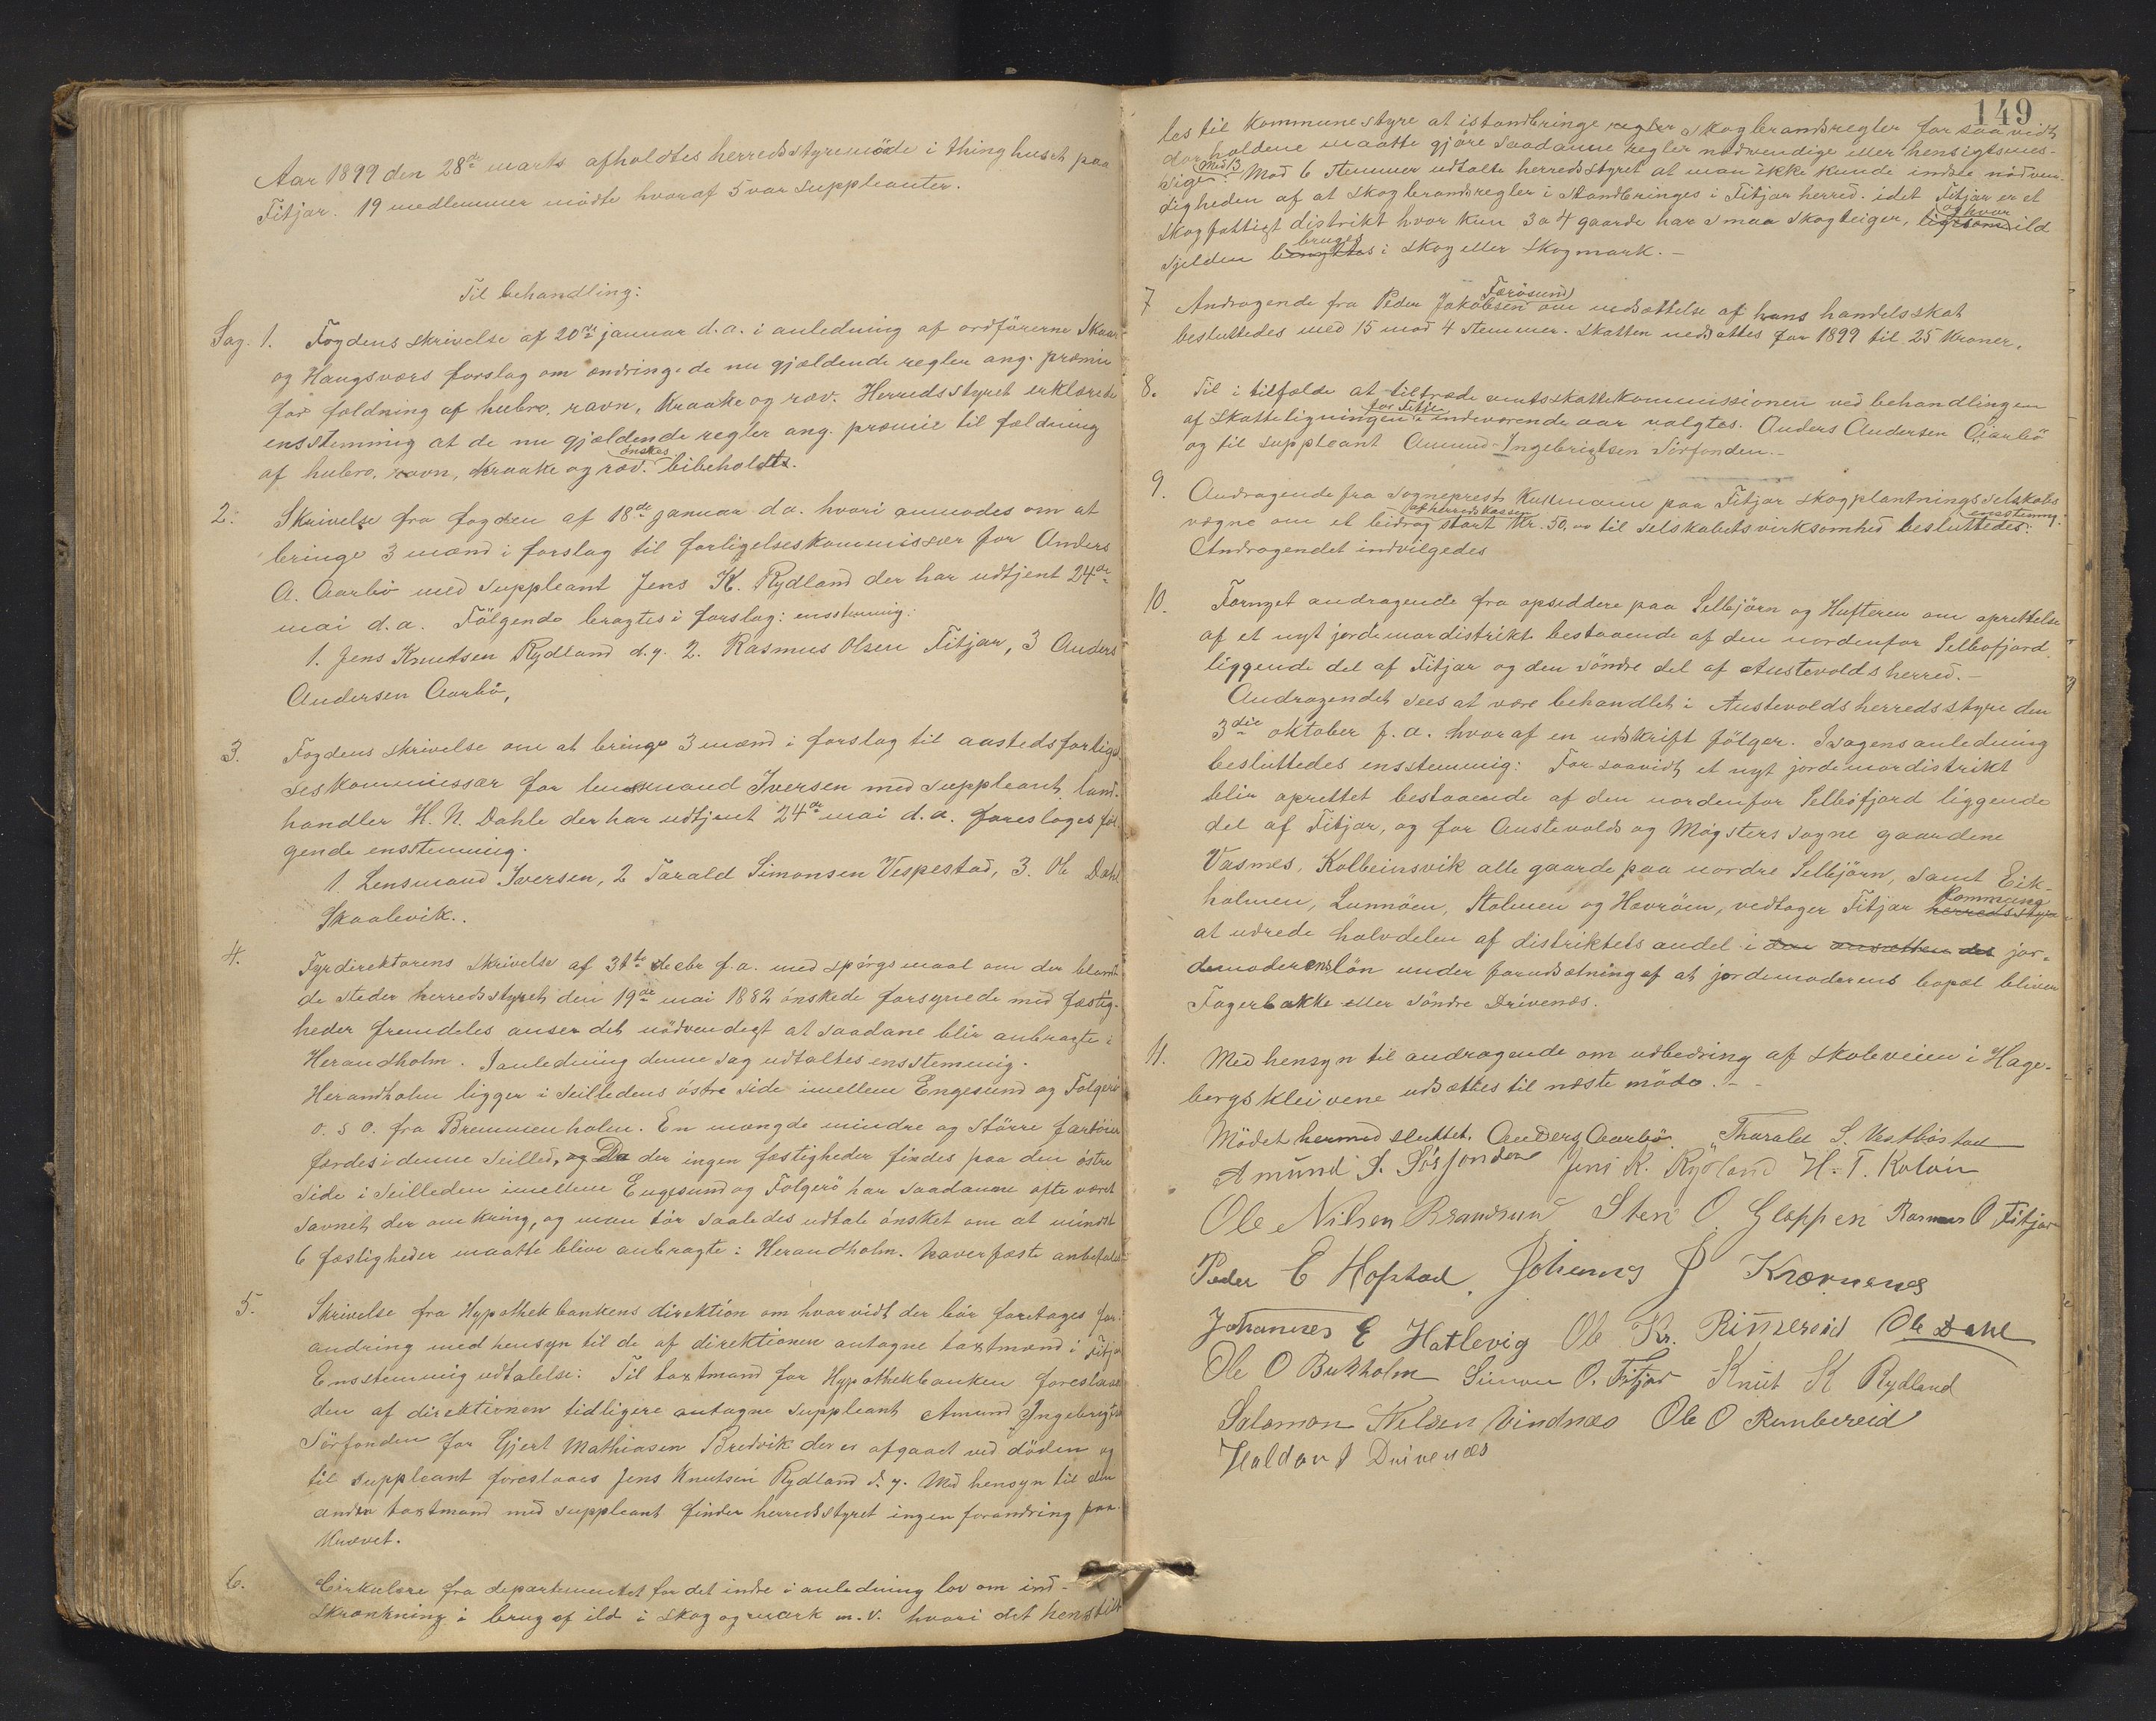 Aar 1899 den 28de marts afholdtes herredsstyremöde i thinghuset paa
Fitjar. 19 medlemmer mödte hvoraf 5 var suppleanter.
Til behandling:
Sag. 1. Fogdens skrivelse af 20de januar d.a. i anledning af ordförerne Skaar
og Haugsværs forslag om ændring. de nu gjældende regler ang. præmie
for fældning af hubro, ravn, kraake og ræv. Herredsstyret erklærede
ensstemmig at de nu gjældende regler ang. præmie til fældning
af hubro, ravn, kraake og ræv. önskes bibeholdts.
2. Skrivelse fra fogden af 18de januar d a. hvori anmodes om at
bringe 3 mænd i forslag til forligelseskommissær for Anders
A. Aarbö med suppleant Jens K. Rydland der har udtjent 24de
mai d.a. Fölgende bragtes i forslag: ensstemmig:
1. Jens Knutsen Rydland d.y. 2. Rasmus Olsen Fitjar, 3 Anders
Andersen Aarbö,
3. Fogdens skrivelse om at bringe 3 mænd i forslag til aastedsforligel
seskommissær for lensmand Iversen med suppleant land-
handler H. N. Dahle der har udtjent 24de mai d.a. foresloges föl
gende ensstemmig.
1. Lensmand Iversen, 2 Tarald Simonsen Vespestad, 3. Ole Dahl
Skaalevik..
4. Fyrdirektorens skrivelse af 31te decbr f.a. med spörgsmaal om der blandt
de steder herredsstyret den 19de mai 1882 önskede forsynede med fæstig-
heder fremdeles anser det nödvendigt at saadane blir anbragte i
Herandholm. I anledning denne sag udtaltes ensstemmig.
Herandholm ligger i Seilledens östre side imellem Engesund og Folgerö
o. s o. fra Bremmenholm. En mængde mindre og större fartöier
færdes i denne Seilled, og Da der ingen fæstigheder findes paa den östre
side i Seilleden imellem Engesund og Folgerö har saadanne ofte været
savnet der omkring, og man tör saaledes udtale önsket om at mindst
6 fæstigheder maatte blive anbragte i Herandholm. Naverfæste anbefales
5. Skrivelse fra Hypothekbankens direktion om hvorvidt der bör foretages for-
andring med hensyn til de af direktionen antagne taxtmænd i Fitjar
Ensstemmig udtalelse: Til taxtmand for Hypothekbanken foreslaaes
den af direktionen tidligere antagne suppleant Amund Ingebrigtsen
Sörfonden for Gjert Mathiasen Bredvik der er afgaaet ved döden og
til suppleant foreslaaes Jens Knutsen Rydland d. y. Med hensyn til den
anden taxtmand med suppleant finder herredsstyret ingen forandring paa-
krævet.
6. Cirkulære fra departementet for det indre i anledning lov om ind-
skrænkning i brug af ild i skog og mark m.v. hvori det henstil
149
les til Kommunestyre at istandbringe regler skogbrandsregler forsaavidt
dorholdene maatte gjöre saadanne regler nödvendige eller hensigtsmes-
sige. Med 13 Mod 6 stemmer udtalte herredsstyret at man ikke kunde indse nödven-
digheden af at skogbrandsregler i standbringes i Fitjar herred. idet Fitjar er et
skogfattigt distrikt hvor kun 3 a 4 gaarde har smaa skogteiger, ligesom og hvor ild
sjelden benyttes bruges i skog eller skogmark. –
7 Andragende fra Peder Jakobsen Færösund om nedsættelse af hans handelsskat
besluttedes med 15 mod 4 stemmer. Skatten nedsattes for 1899 til 25 kroner.
8. Til i tilfælde at tiltræde amtsskattekommissionen ved behandlingen
af skatteligningen for Fitje i indeværende aar valgtes. Anders Andersen Aarbö
og til suppleant Amund Ingebrigtsen Sörfonden. –
9. Andragende fra sogneprest Kullmann paa Fitjar skogplantningsselskabs
vegne om et bidrag af herredskassen stort kr. 50,00 til selskabets virksomhed besluttedes ensstemmig:
Andragendet indvilgedes
10. Fornyet andragende fra opsiddere paa Selbjörn og Hufteren om oprettelse
af et nyt jordemordistrikt bestaaende af den nordenfor Selbofjord
liggende del af Fitjar og den söndre del af Austevolds herred. –
Andragendet sees at være behandlet i Austevolds herredsstyre den
3die oktober f.a. hvoraf en udskrift fölger. I sagens anledning
besluttedes ensstemmig: For saavidt et nyt jordemordistrikt
blir oprettet bestaaende af den nordenfor Selböfjord liggende
del af Fitjar, og for Austevolds og Mögsters sogne gaardene
Vasnes, Kolbeinsvik alle gaarde paa nordre Selbjörn, samt Eik-
holmen, Lunnöen, Stolmen og Hevröen, vedtager Fitjar herredsstyre Kommune
at udrede halvdelen af distriktets andel i den ansatten des jor-
demoderens lön under forudsætning af at jordemoderens bopæl bliver
Fagerbakke eller Söndre Drivenæs.
11. Med hensyn til andragende om udbedring af skoleveien i Hage-
bergskleivene udsættes til næste möde. –
Mödet hermed sluttet. Anders Aarbö. Tharald S. Vestböstad
Amund I. Sörfonden Jens K. Rydland H. T. Koløen
Ole Nilsen Brandsund Sten O. Gloppen Rasmus O Fitjar
Peder E Hofstad. Johannes J Kræmenes
Johannes E Hatlevig Ole Kr. Rimmereid Ole Dahl
Ole O Bukholm Simon O. Fitjar Knut K Rydland
Salomon Nelsen Vindnæs Ole O Rimbereid
Haldor J Drivenæs